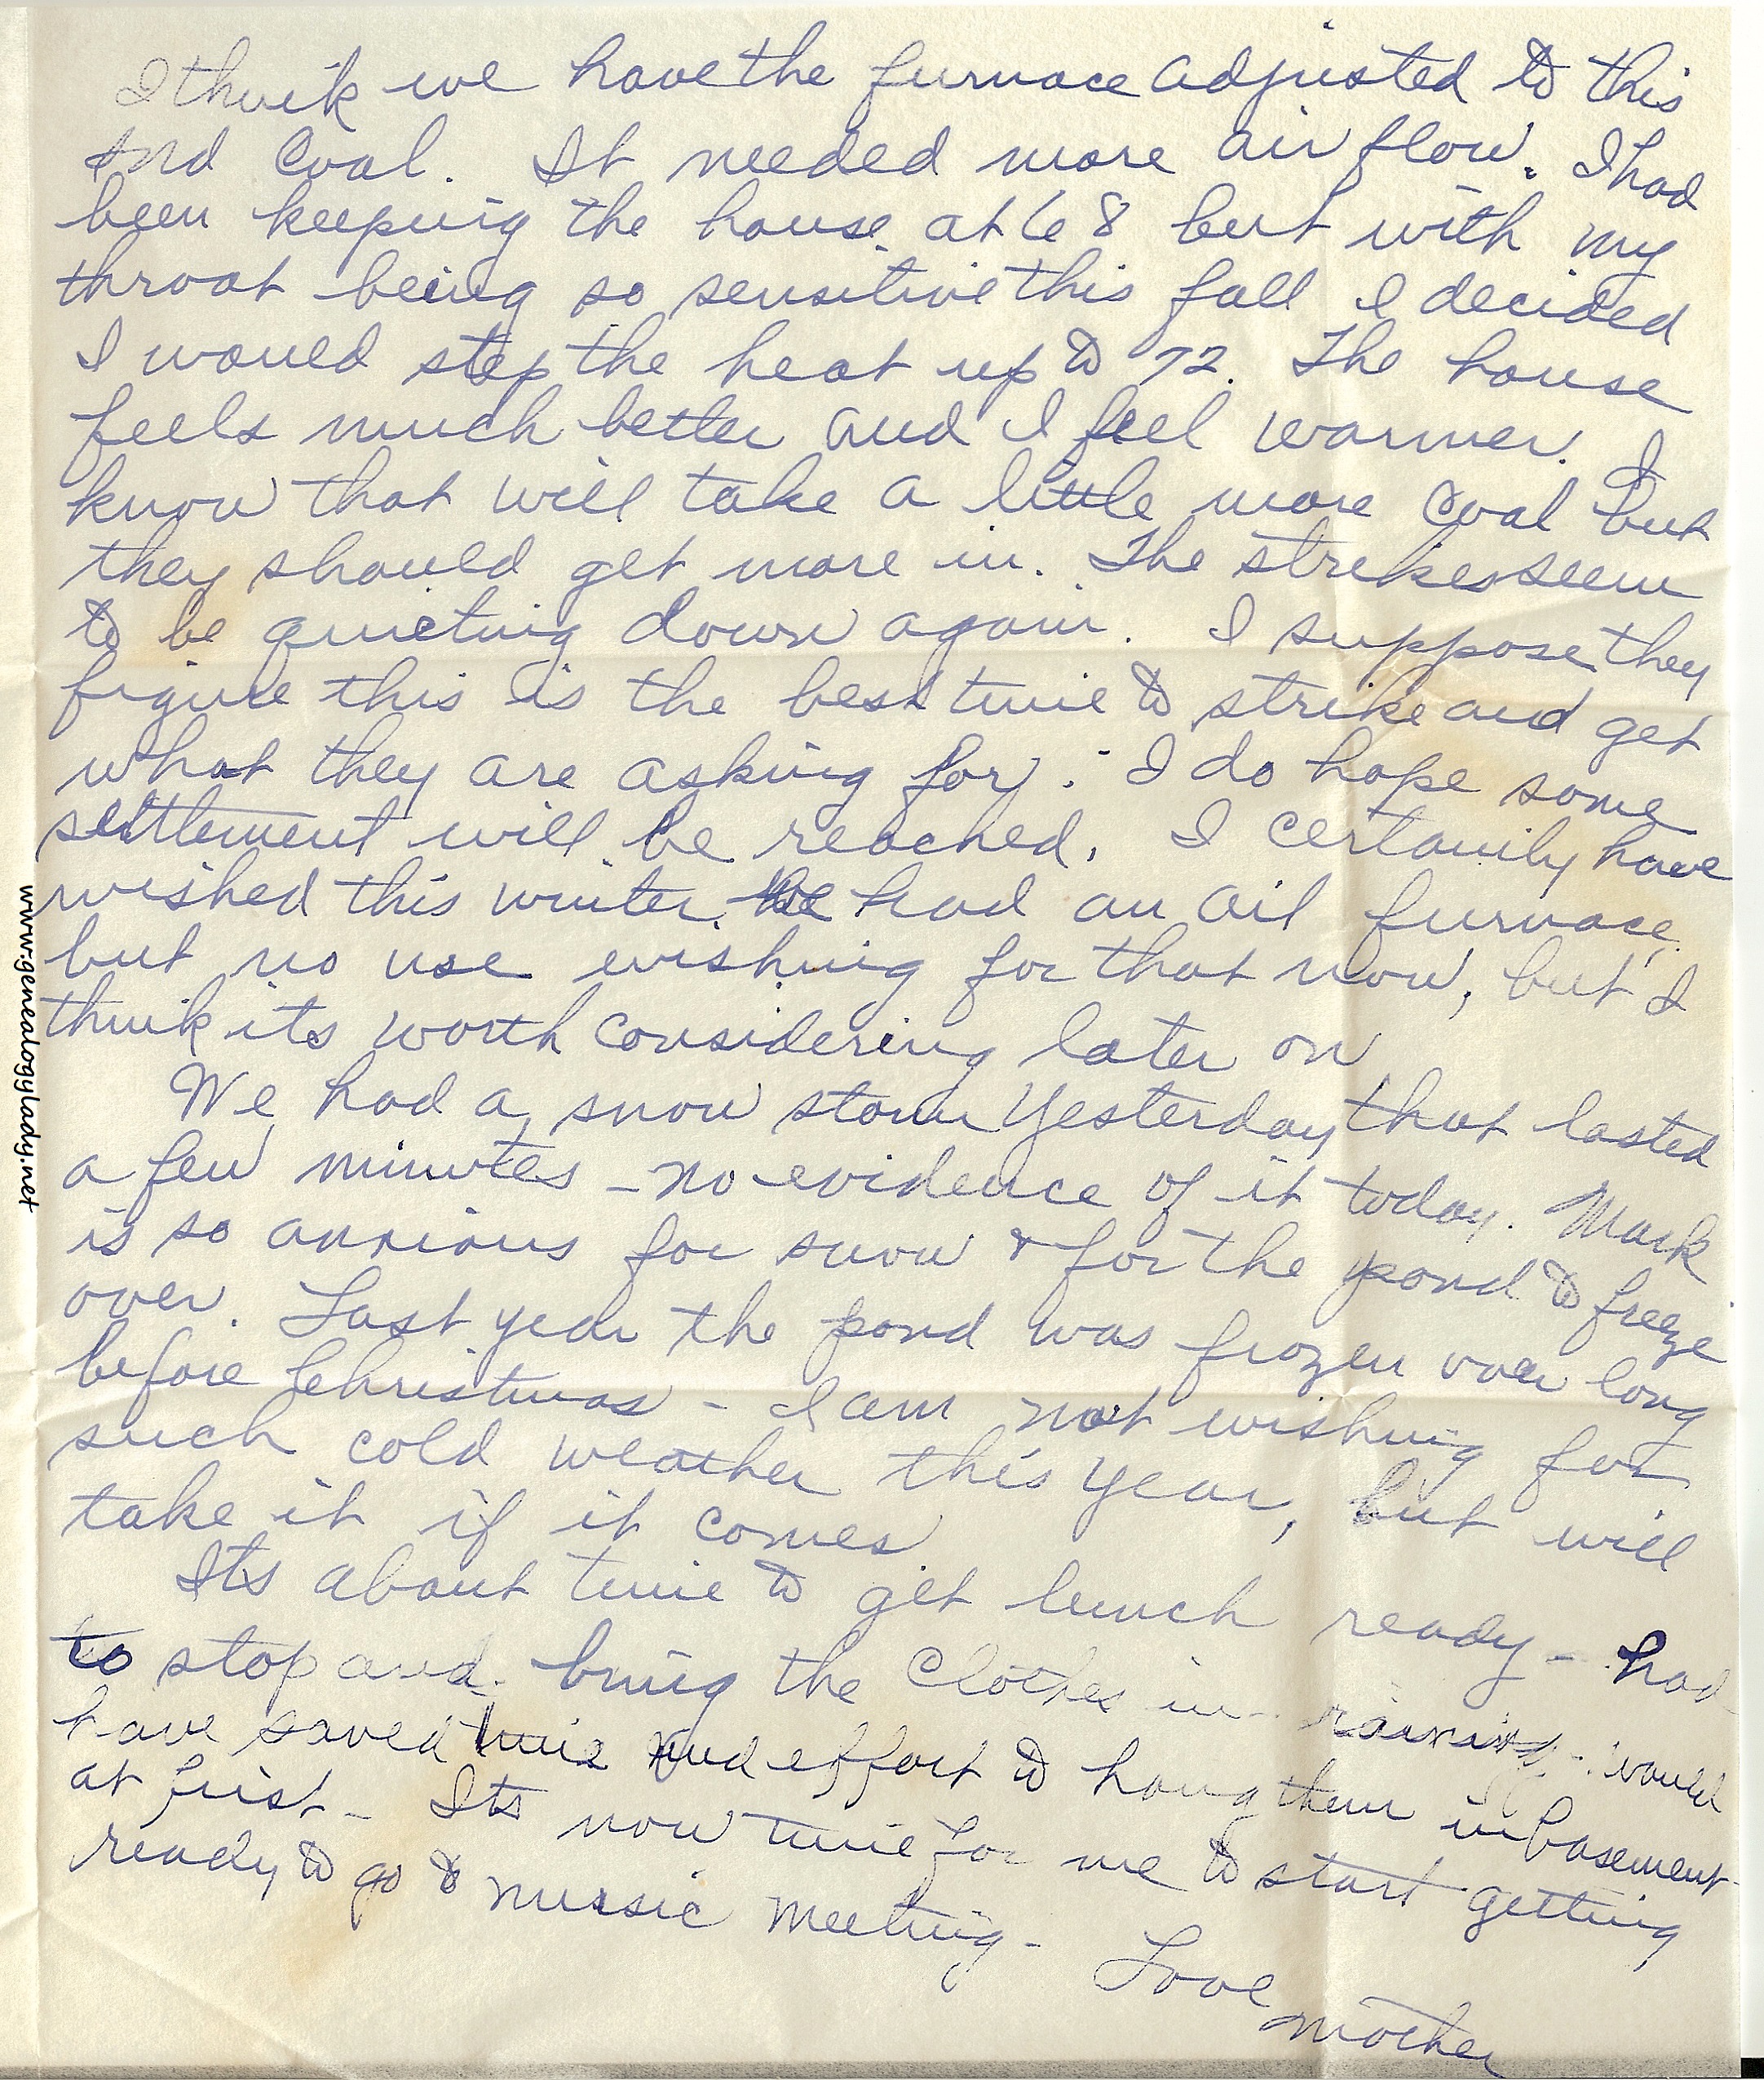 I think we have the furnace adjusted to this
Ind Coal. It needed more air flow. I had
been keeping the house at 68 but with my
throat being so sensitive this fall I decided
I would step the heat up to 72. The house
feels much better and I feel warmer. I
know that will take a little more coal but
they should get more in. The strikes seem
to be quieting down again. I suppose they
figure this is the best time to strike and get
what they are asking for. I do hope some
settlement will be reached. I certainly have
wished this winter we had an oil furnace,
but no use wishing for that now, but I
think its worth considering later on
We had a snow storm yesterday that lasted
a few minutes - no evidence of it today. Mark
is so anxious for snow & for the pond to freeze
over. Last year the pond was frozen over long
before Christmas - I am not wishing for
such cold weather this year, but will
take it if it comes
Its about time to get lunch ready - had
to stop and bring the clothes in - raining - would
have saved time and effort to hang them in basement
at first - Its now time for me to start getting
ready to go to music meeting -
Love
Mother
www.genealogylady.net